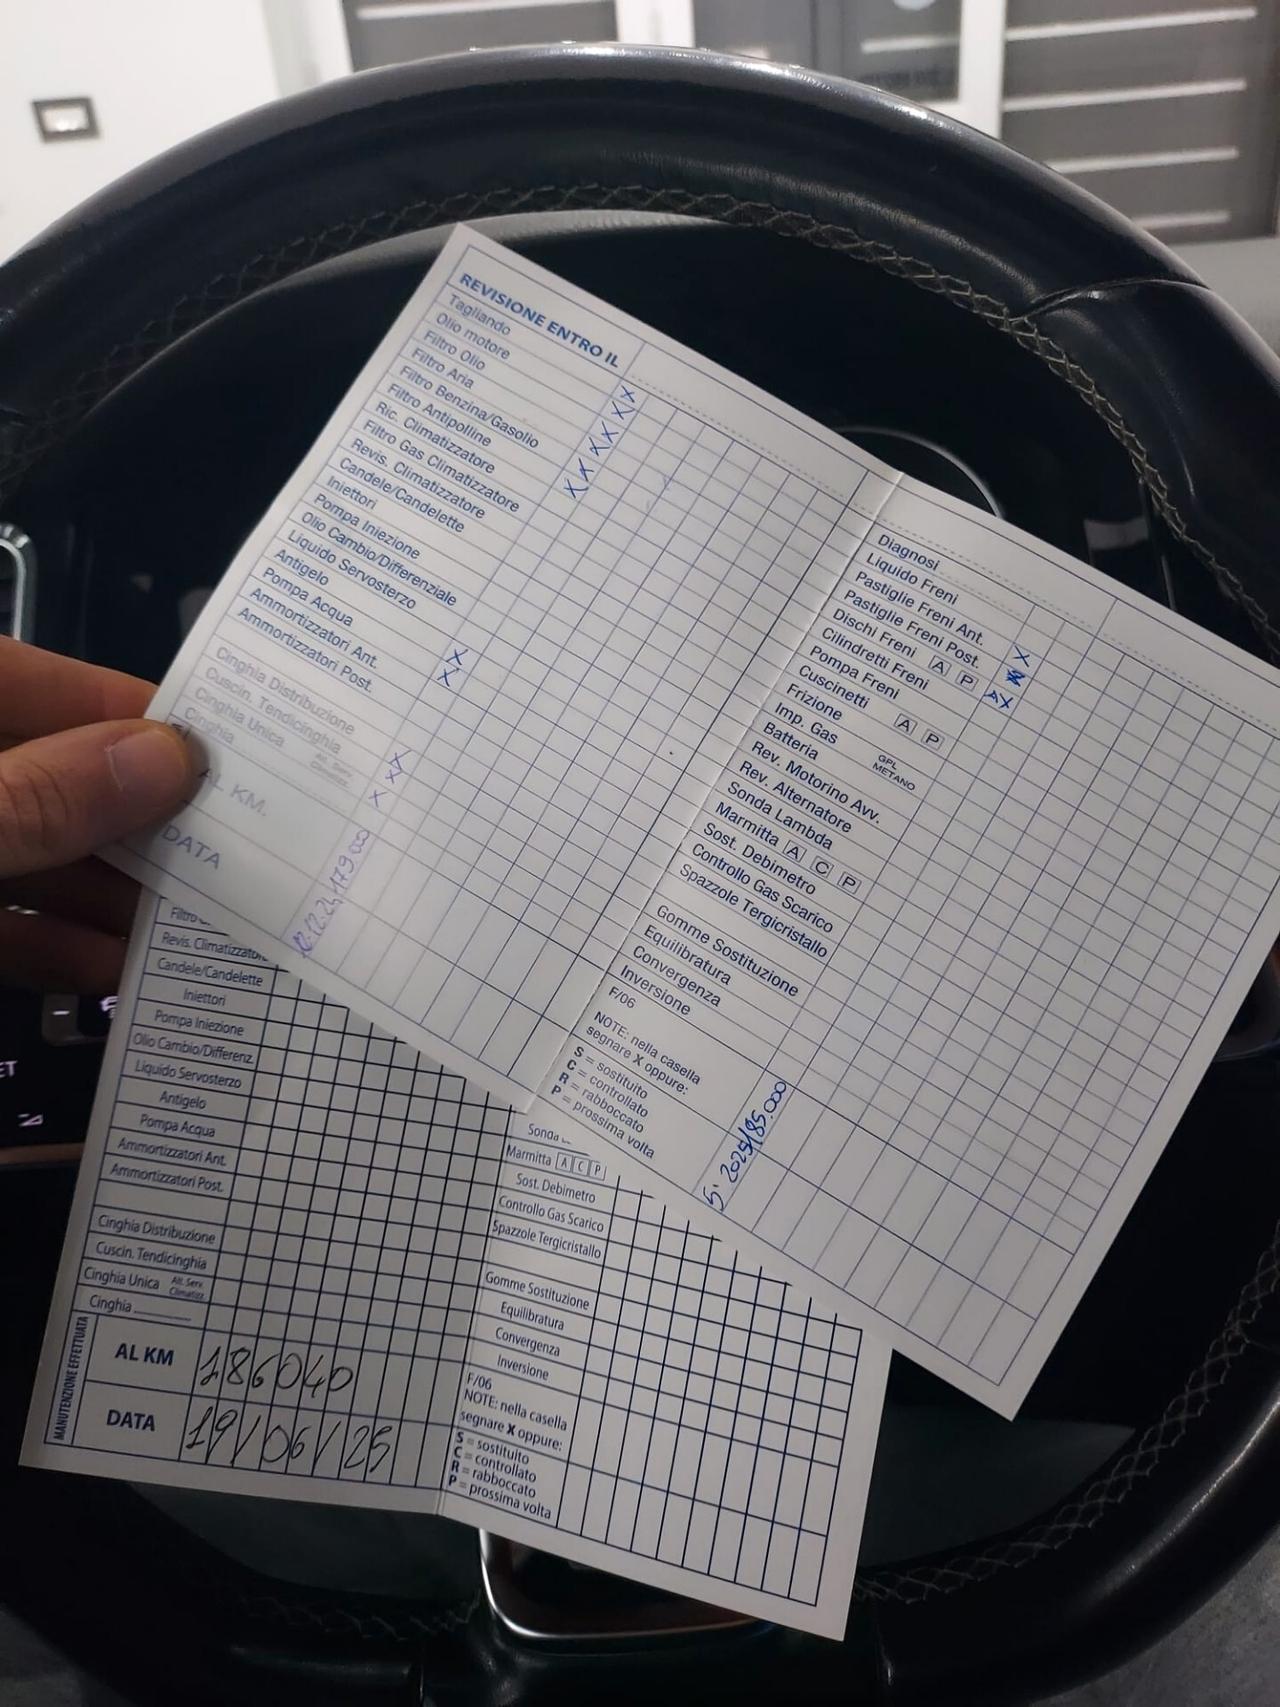 REVISIONE ENTRO IL
Tagliando
Olio motore
Filtro Olio
Filtro Aria
Filtro Benzina/Gasolio
Filtro Antipolline
Ric. Climatizzatore
Filtro Gas Climatizzatore
Revis. Climatizzatore
Candele/Candelette
Iniettori
Pompa Iniezione
Olio Cambio/Differenziale
Liquido Servosterzo
Antigelo
Pompa Acqua
Ammortizzatori Ant.
Ammortizzatori Post.
Cinghia Distribuzione
Cuscin. Tendicinghia
Cinghia Unica Alt. Serv. Climatizz.
Cinghia
AL KM.
DATA
12.12.24 179.000
Diagnosi
Liquido Freni
Pastiglie Freni Ant.
Pastiglie Freni Post.
Dischi Freni A P
Cilindretti Freni
Pompa Freni
Cuscinetti A P
Frizione
Imp. Gas GPL METANO
Batteria
Rev. Motorino Avv.
Rev. Alternatore
Sonda Lambda
Marmitta A C P
Sost. Debimetro
Controllo Gas Scarico
Spazzole Tergicristallo
Gomme Sostituzione
Equilibratura
Convergenza
Inversione
F/06
NOTE: nella casella
segnare X oppure:
S = sostituito
C = controllato
R = rabboccato
P = prossima volta
5. 2025/185.000
Revis. Climatizzatore
Candele/Candelette
Iniettori
Pompa Iniezione
Olio Cambio/Differenz.
Liquido Servosterzo
Antigelo
Pompa Acqua
Ammortizzatori Ant.
Ammortizzatori Post.
Cinghia Distribuzione
Cuscin. Tendicinghia
Cinghia Unica Alt. Serv. Climatizz.
Cinghia
MANUTENZIONE EFFETTUATA
AL KM 186040
DATA 19/06/25
Sonda
Marmitta A C P
Sost. Debimetro
Controllo Gas Scarico
Spazzole Tergicristallo
Gomme Sostituzione
Equilibratura
Convergenza
Inversione
F/06
NOTE: nella casella
segnare X oppure:
S = sostituito
C = controllato
R = rabboccato
P = prossima volta